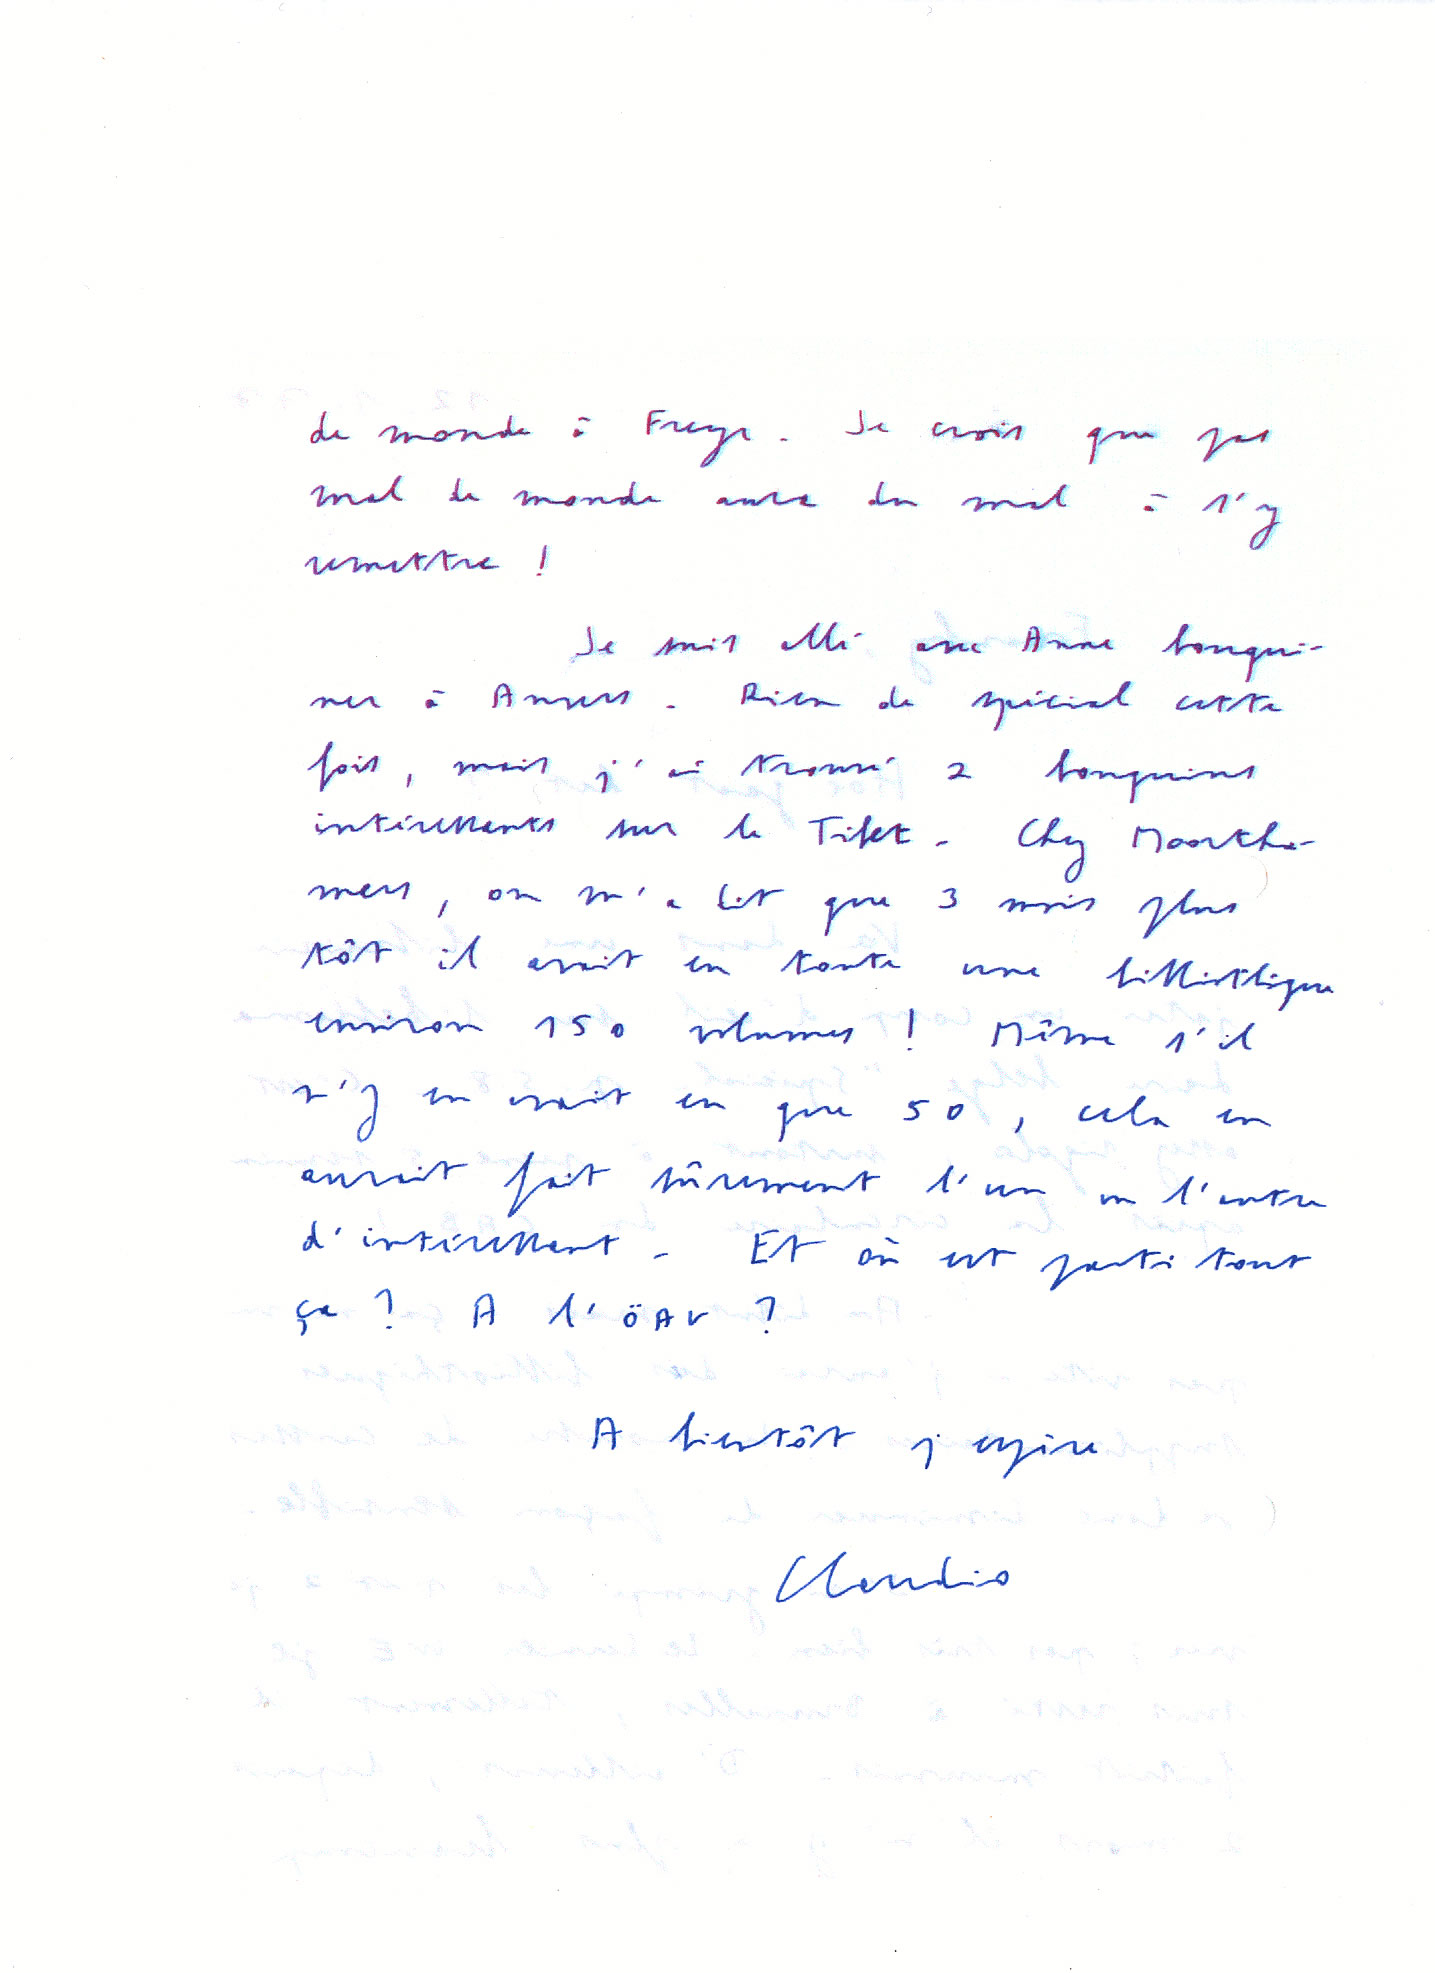 de monde à Freyr. Je crois que pas
mal de monde aura du mal à s'y
remettre !
Je suis allé avec Anne bouqui-
ner à Anvers. Rien de spécial cette
fois, mais j'ai trouvé 2 bouquins
intéressants sur le Tibet. Chez Moortha-
mers, on m'a dit que 3 mois plus
tôt il avait eu toute une bibliothèque
environ 150 volumes ! Même s'il
n'y en avait eu que 50, cela en
aurait fait sûrement l'un ou l'autre
d'intéressant. Et où est parti tout
ça ? A l'ÖAV ?
A bientôt j'espère
Claudio